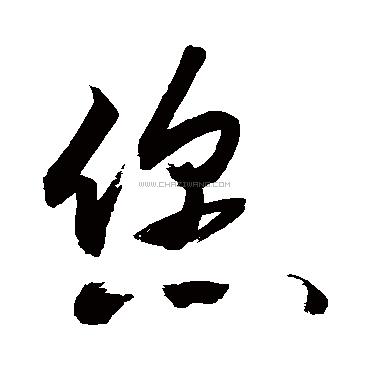 您
WWW.CHAZIWANG.COM